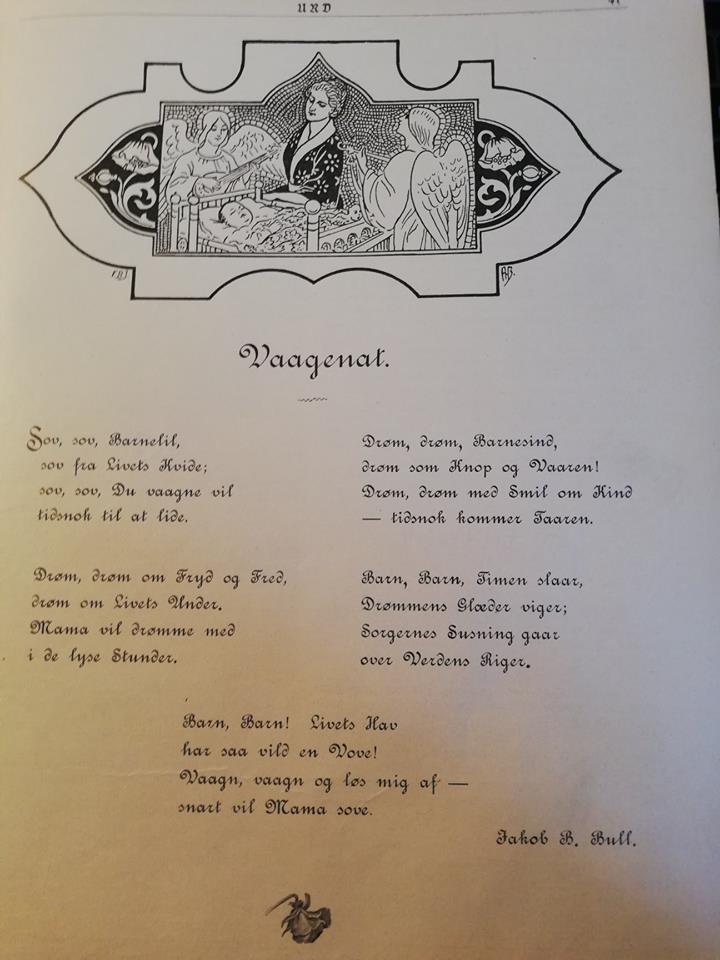 URD
Vaagenat.
Sov, sov, Barnelil,
sov fra Livets Kvide;
sov, sov, Du vaagne vil
tidsnok til at lide.
Drøm, drøm om Fryd og Fred,
drøm om Livets Under.
Mama vil drømme med
i de lyse Stunder.
Drøm, drøm, Barnesind,
drøm som Knop og Vaaren!
Drøm, drøm med Smil om Kind
— tidsnok kommer Taaren.
Barn, Barn, Timen slaar,
Drømmens Glæder viger;
Sorgernes Susning gaar
over Verdens Riger.
Barn, Barn! Livets Hav
har saa vild en Vove!
Vaagn, vaagn og løs mig af —
snart vil Mama sove.
Jakob B. Bull.